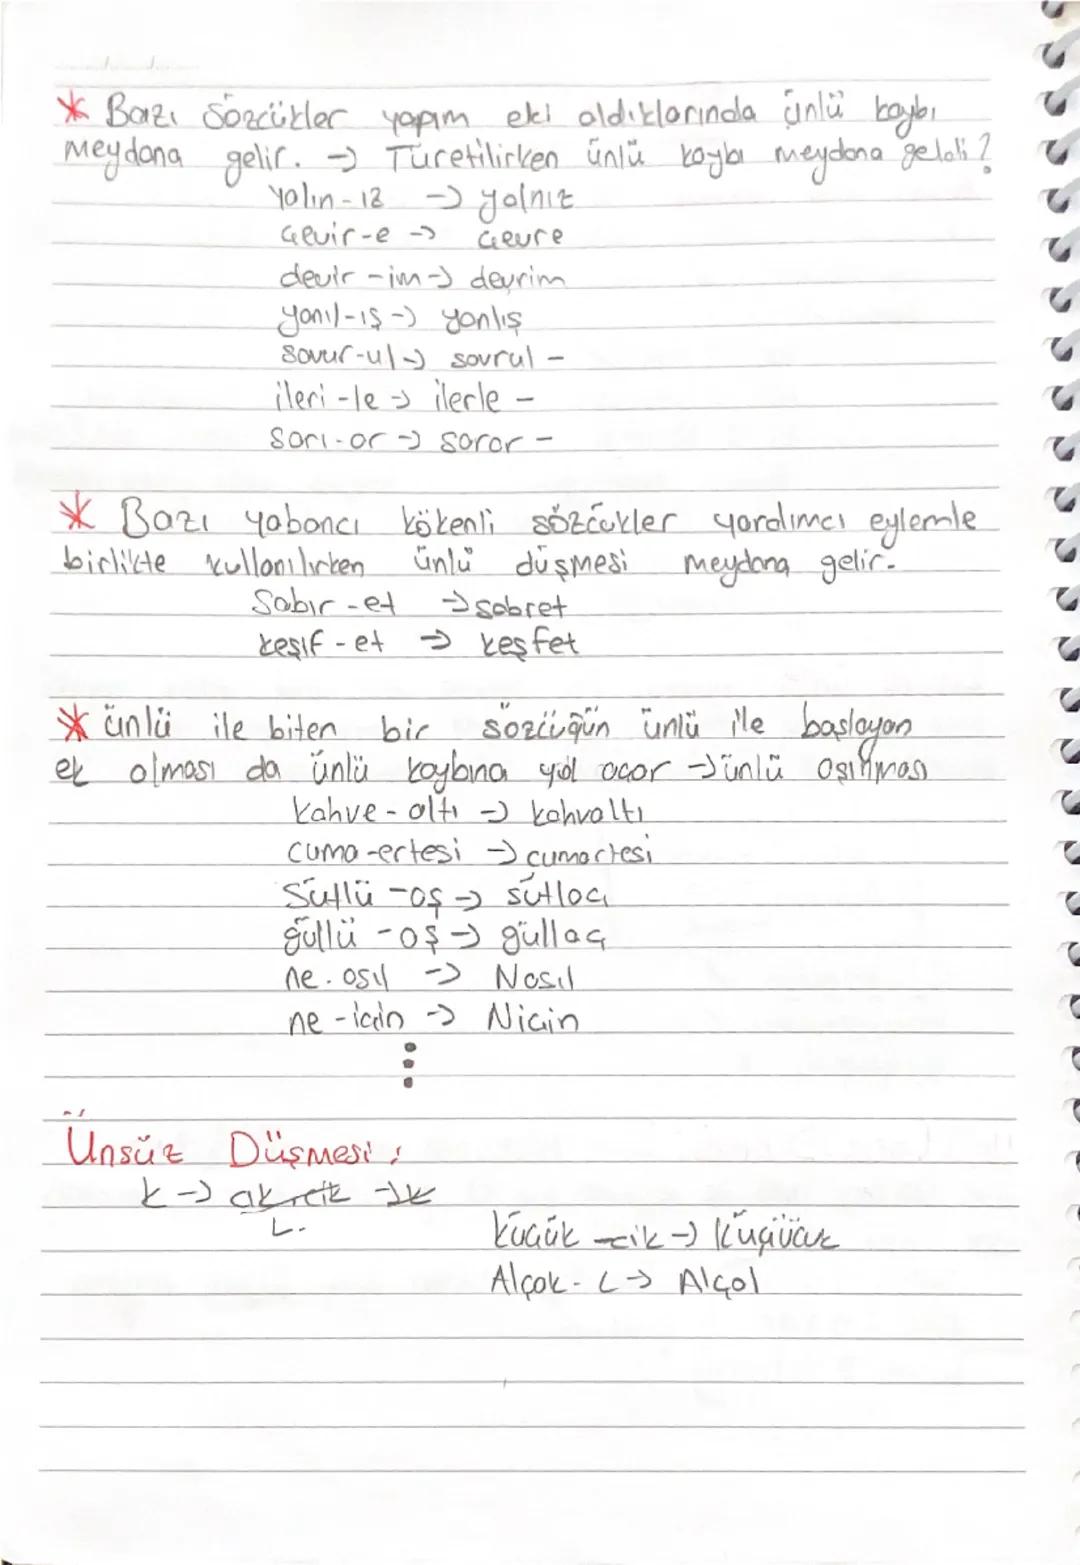 * Bazı sözcükler yapım eki aldıklarında ünlü kaybı
meydana gelir. → Türetilirken ünlü kaybı meydana geldi?
yalın - ız → yalnız
çevir-e → çevre
devir - im → devrim
yanıl-ış → yanlış
savur-ul → savrul -
ileri - le → ilerle -
sarı - ar → sarar -
* Bazı yabancı kökenli sözcükler yardımcı eylemle
birlikte kullanılırken ünlü düşmesi meydana gelir.
Sabır - et → sabret
keşif - et → keşfet
* ünlü ile biten bir sözcüğün ünlü ile başlayan
ek alması da ünlü kaybına yol açar → ünlü aşınması
kahve - altı → kahvaltı
cuma - ertesi → cumartesi
Sütlü - aş → sütlaç
güllü - aş → güllaç
ne - asıl → Nasıl
ne - için → Niçin
Ünsüz Düşmesi:
k → -cik → k
L.
küçük - cik → Küçücük
Alçak - L → Alçal